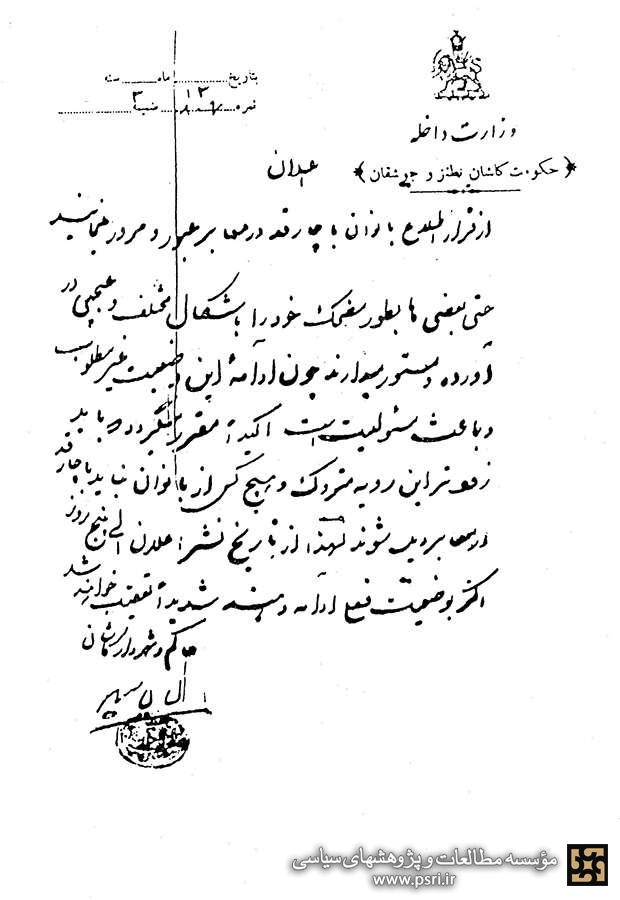 وزارت داخله
حکومت کاشان نطنز و جوشقان
بتاریخ ماه سنه
نمره ضمیمه ۳
اعلان
از قرار اطلاع بانوان با چارقد در معابر عبور و مرور مینمایند
حتی بعضی ها بطور مضحک خود را باشکال مختلف و عجیبی در
آورده و مستور میدارند چون ادامهٔ این وضعیت غیر مطلوب
و باعث مسئولیت است اکیداً مقرر میگردد باید
زودتر این رویه متروک و هیچ کس از بانوان نباید با چارقد
در معابر دیده شوند لهذا از تاریخ نشر اعلان الی پنج روز
اگر بوضعیت فعلی ادامه دهند شدیداً تعقیب خواهند شد
حاکم و شهردار کاشان
مؤسسه مطالعات و پژوهشهای سیاسی
www.psri.ir